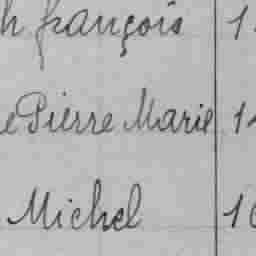 h françois 1
e Pierre Marie 1
Michel 10